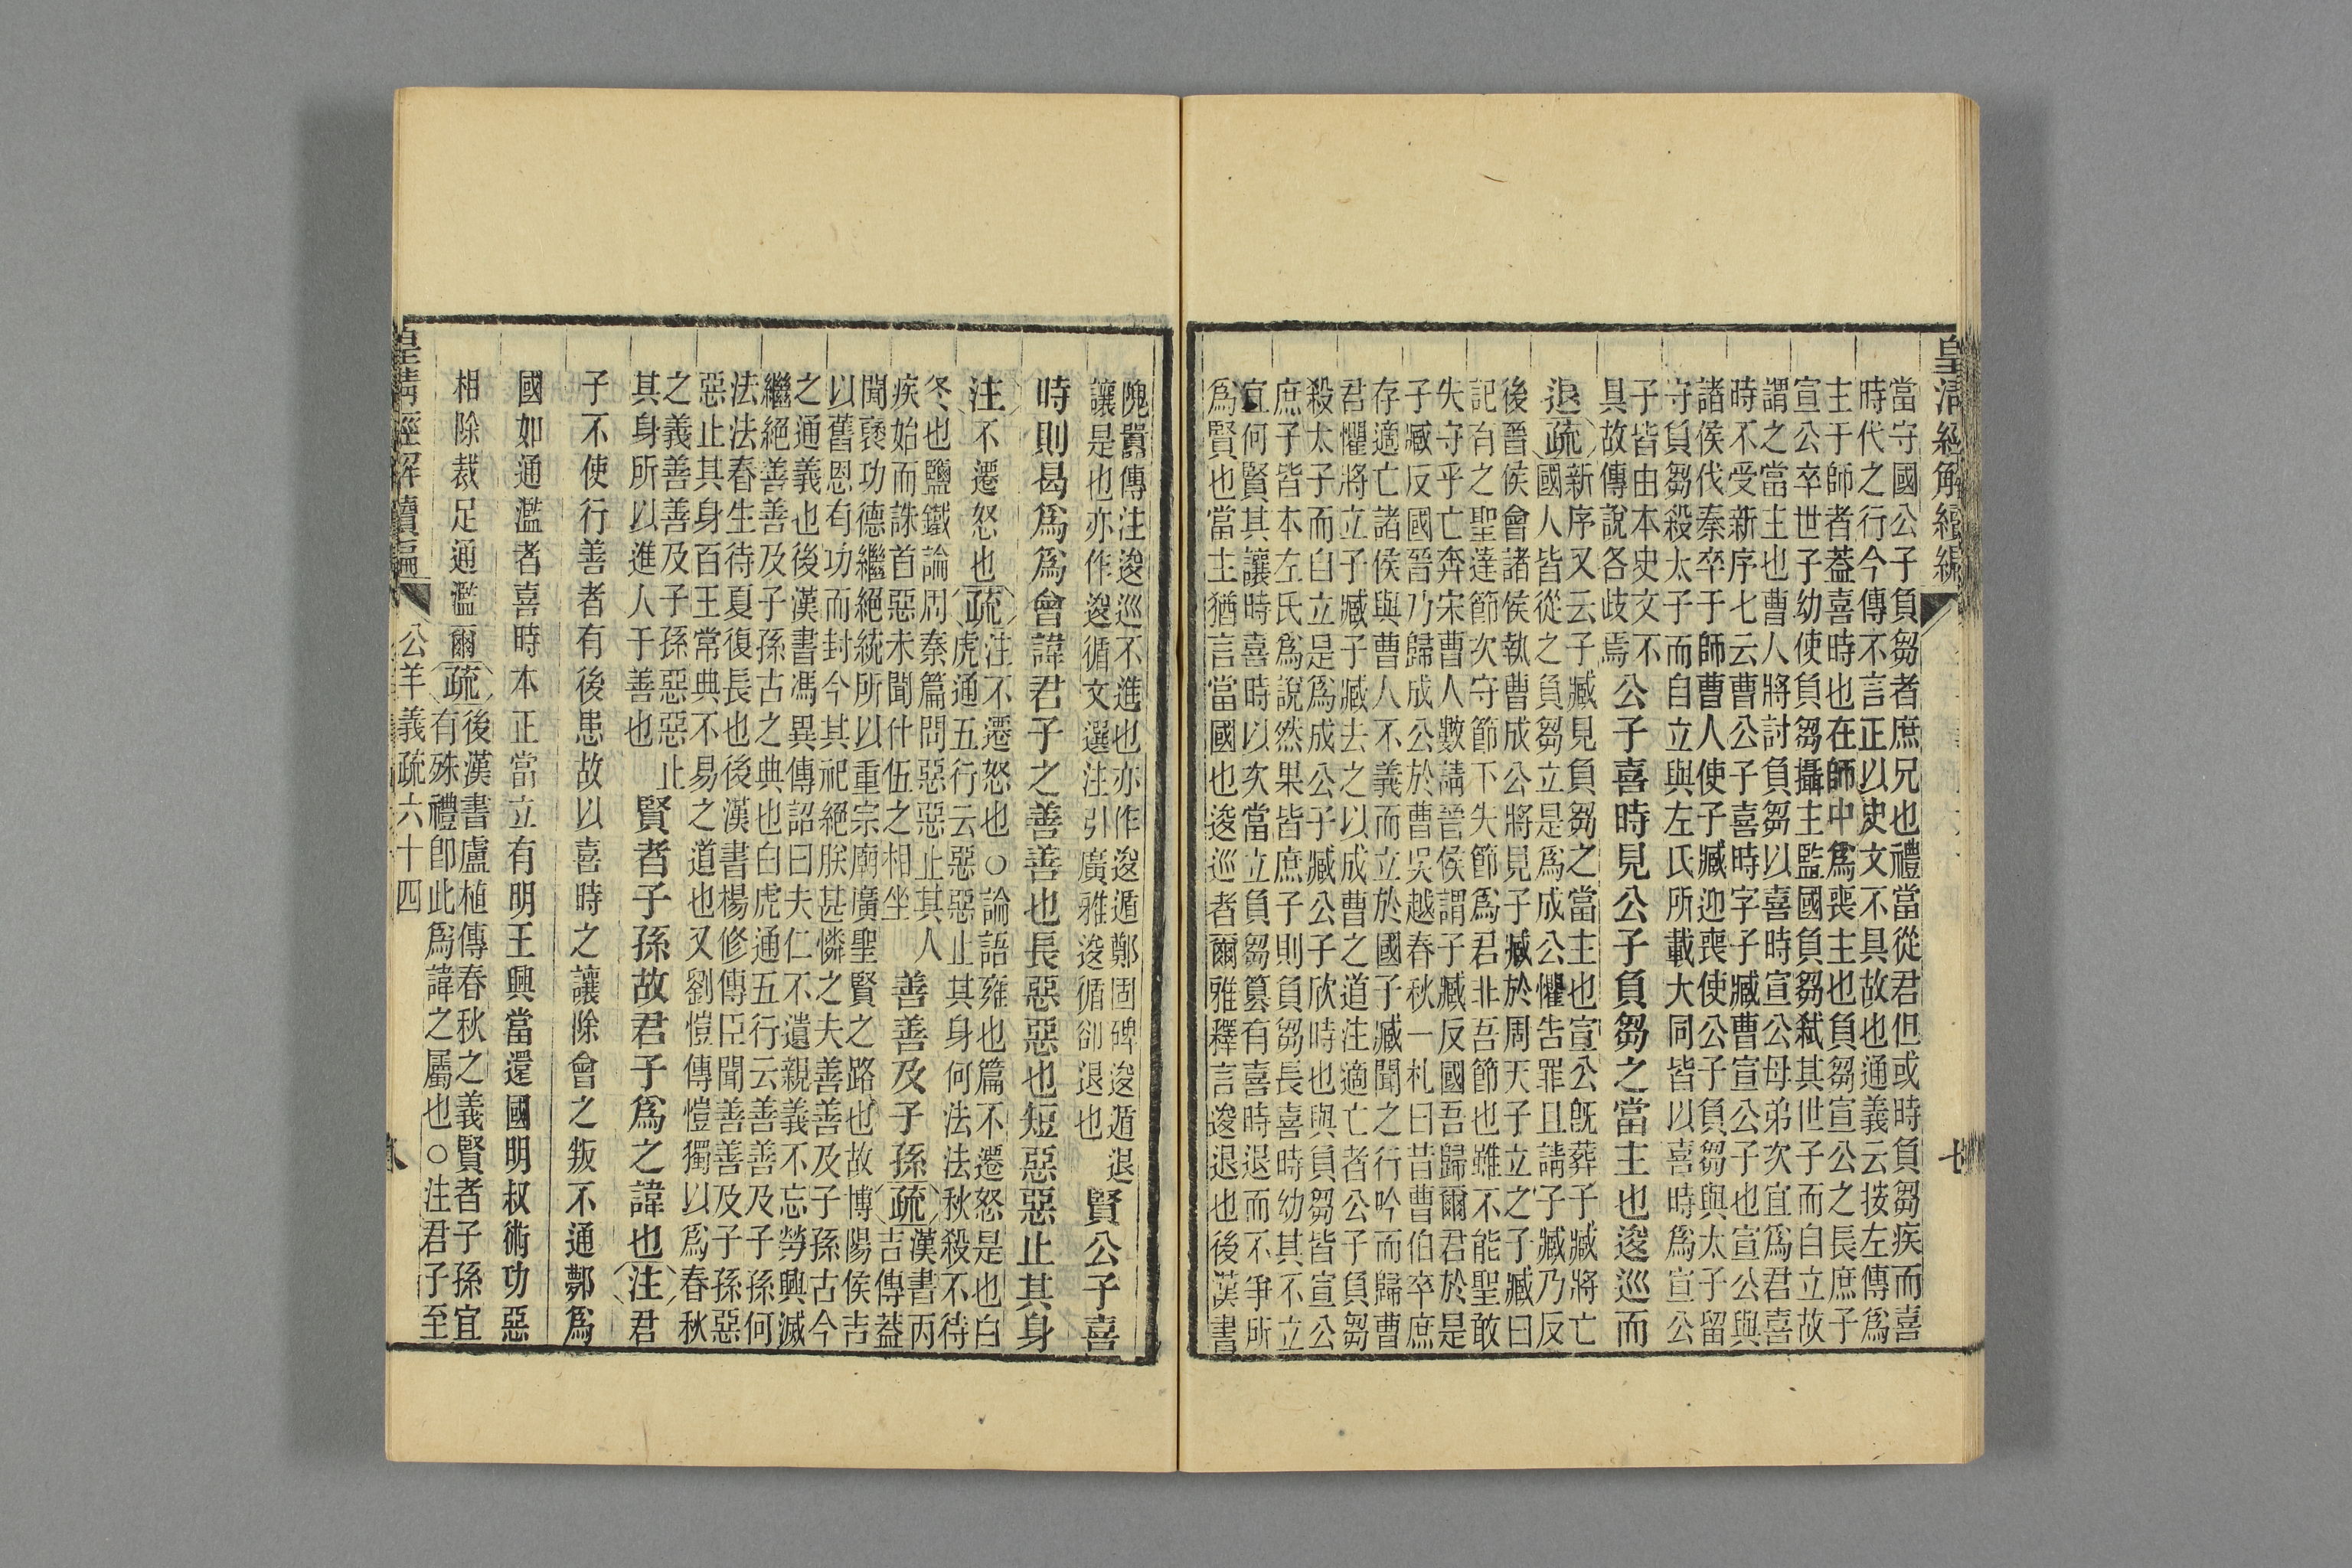 皇清經解續編
當守國公子負芻者庶兄也禮當從君但或時負芻疾而喜
時代之行今傳不言正以史文不具故也通義云按左傳爲
主于師者蓋喜時也在師中爲喪主也負芻宣公之長庶子
宣公卒世子幼使負芻攝主監國負芻弑其世子而自立故
謂之當主也曹人將討負芻以喜時宣公母弟次宜爲君喜
時不受新序七云曹公子喜時字子臧曹宣公子也宣公與
諸侯伐秦卒于師曹人使子臧迎喪使公子負芻與太子留
守負芻殺太子而自立與左氏所載大同皆以喜時爲宣公
子皆由本史文不
具故傳說各歧焉公子喜時見公子負芻之當主也逡巡而
退疏新序又云子臧見負芻之當主也宣公旣葬子臧將亡
國人皆從之負芻立是爲成公懼告罪且請子臧乃反
後晉侯會諸侯執曹成公將見子臧於周天子立之子臧曰
記有之聖達節次守節下失節爲君非吾節也雖不能聖敢
失守乎亡奔宋曹人數請晉侯謂子臧反國吾歸爾君於是
子臧反國晉乃歸成公於曹吳越春秋一札曰昔曹伯卒庶
存適亡諸侯與曹人不義而立於國子臧聞之行吟而歸曹
君懼將立子臧子臧去之以成曹之道注適亡者公子負芻
殺太子而自立是爲成公子臧公子欣時也與負芻皆宣公
庶子皆本左氏爲說然果皆庶子則負芻長喜時幼其不立
宜何賢其讓時喜時以次當立負芻篡有喜時退而不爭所
爲賢也當主猶言當國也逡巡者爾雅釋言逡退也後漢書
七
隗囂傳注逡巡不進也亦作逡遁鄭固碑逡遁退
讓是也亦作逡循文選注引廣雅逡循卻退也賢公子喜
時則曷爲爲會諱君子之善善也長惡惡也短惡惡止其身
注不遷怒也疏注不遷怒也○論語雍也篇不遷怒是也白
虎通五行云惡惡止其身何法法秋殺不待
冬也鹽鐵論周秦篇問惡惡止其人
疾始而誅首惡未聞什伍之相坐善善及子孫疏漢書丙
吉傳蓋
聞褒功德繼絕統所以重宗廟廣聖賢之路也故博陽侯吉
以舊恩有功而封今其祀絕朕甚憐之夫善善及子孫古今
之通義也後漢書馮異傳詔曰夫仁不遺親義不忘勞興滅
繼絕善善及子孫古之典也白虎通五行云善善及子孫何
法法春生待夏復長也後漢書楊修傳臣聞善善及子孫惡
惡止其身百王常典不易之道也又劉愷傳愷獨以爲春秋
之義善善及子孫惡惡止
其身所以進人于善也賢者子孫故君子爲之諱也注君
子不使行善者有後患故以喜時之讓除會之叛不通鄸爲
國如通濫者喜時本正當立有明王興當還國明叔術功惡
相除裁足通濫爾疏後漢書盧植傳春秋之義賢者子孫宜
有殊禮卽此爲諱之屬也○注君子至
皇清經解續編
公羊義疏六十四